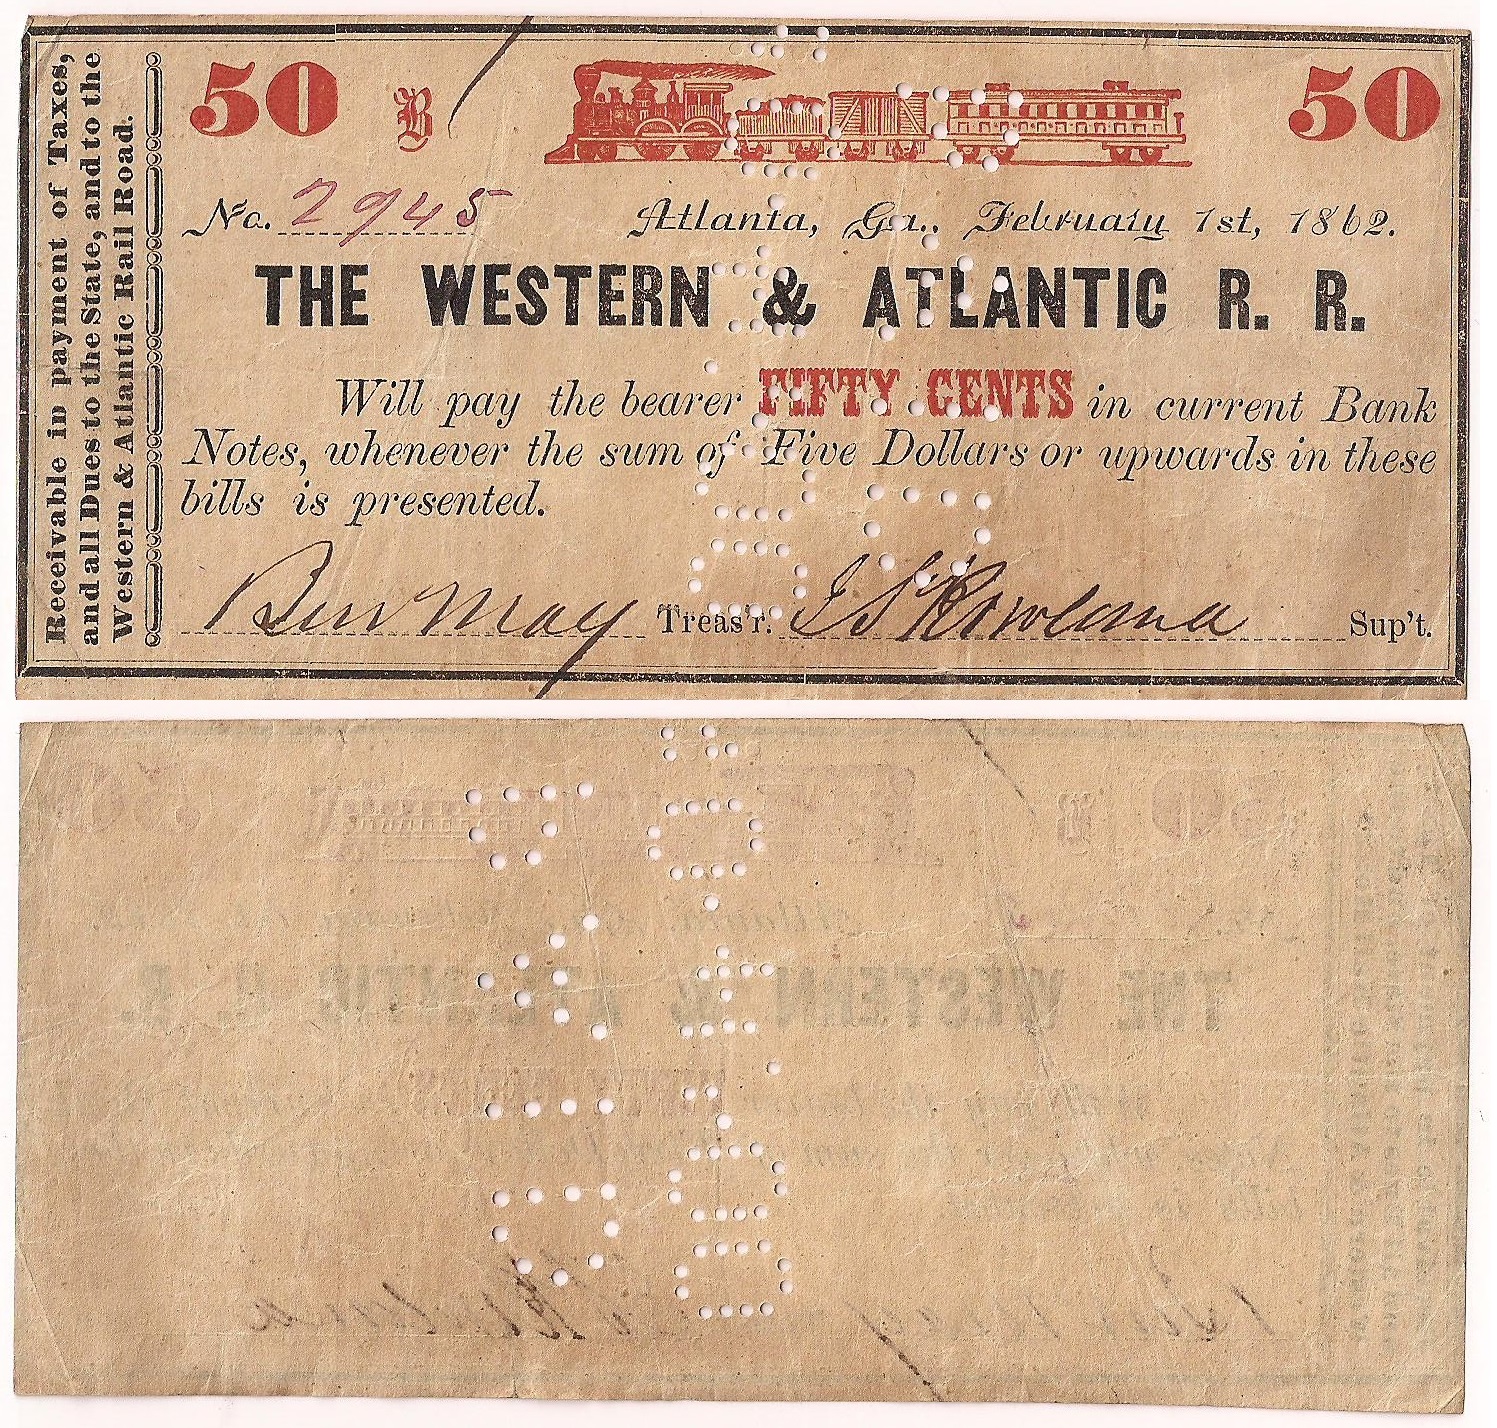 Receivable in payment of Taxes,
and all Dues to the State, and to the
Western & Atlantic Rail Road.
50 B 50
No. 2945 Atlanta, Ga., February 1st, 1862.
THE WESTERN & ATLANTIC R. R.
Will pay the bearer FIFTY CENTS in current Bank
Notes, whenever the sum of Five Dollars or upwards in these
bills is presented.
Ben May Treas'r. I S Rowland Sup't.